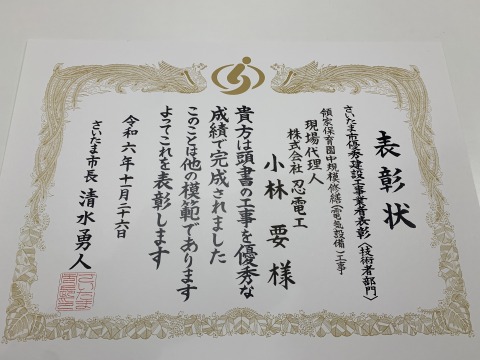 表彰状
さいたま市優秀建設工事業者表彰〈技術者部門〉
領家保育園中規模修繕（電気設備）工事
現場代理人
株式会社忍電工
小林要様
貴方は頭書の工事を優秀な
成績で完成されました
このことは他の模範であります
よってこれを表彰します
令和六年十一月二十六日
さいたま市長 清水勇人